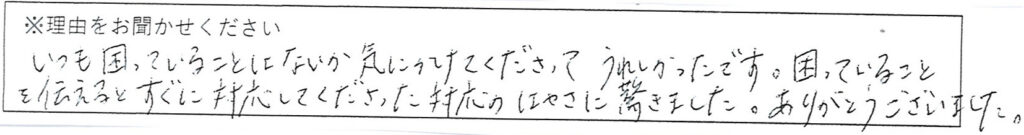 ※理由をお聞かせください
いつも困っていることはないか気にかけてくださって うれしかったです。困っていること
を伝えるとすぐに対応してくださった対応のはやさに驚きました。ありがとうございました。